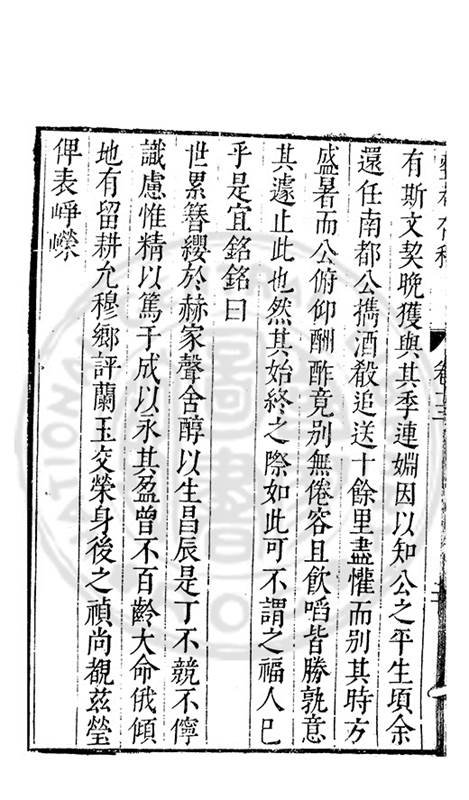 有斯文契晚獲與其季連婣因以知公之平生頃余
還任南都公攜酒殽追送十餘里盡懽而别其時方
盛暑而公俯仰酬酢竟别無倦容且飲啗皆勝孰意
其遽止此也然其始終之際如此可不謂之福人已
乎是宜銘銘曰
世累簪纓於赫家聲含醇以生昌辰是丁不競不儜
識慮惟精以篤于成以永其盈曾不百齡大命俄傾
地有留耕允穆鄉評蘭玉交榮身後之禎尚觀茲塋
俾表崢嶸